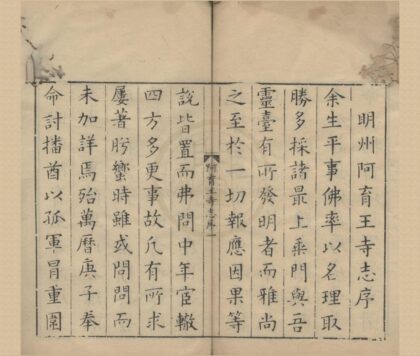 明州阿育王寺志序
余生平事佛率以名理取
勝多採諸最上乘門與吾
靈臺有所發明者而雅尚
之至於一切報應因果等
阿育王寺志序
一
說皆置而弗問中年宦轍
四方多更事故凡有所求
屢著肹蠁時雖或問問而
未加詳焉殆萬曆庚子奉
命討播酋以孤軍冒重圍